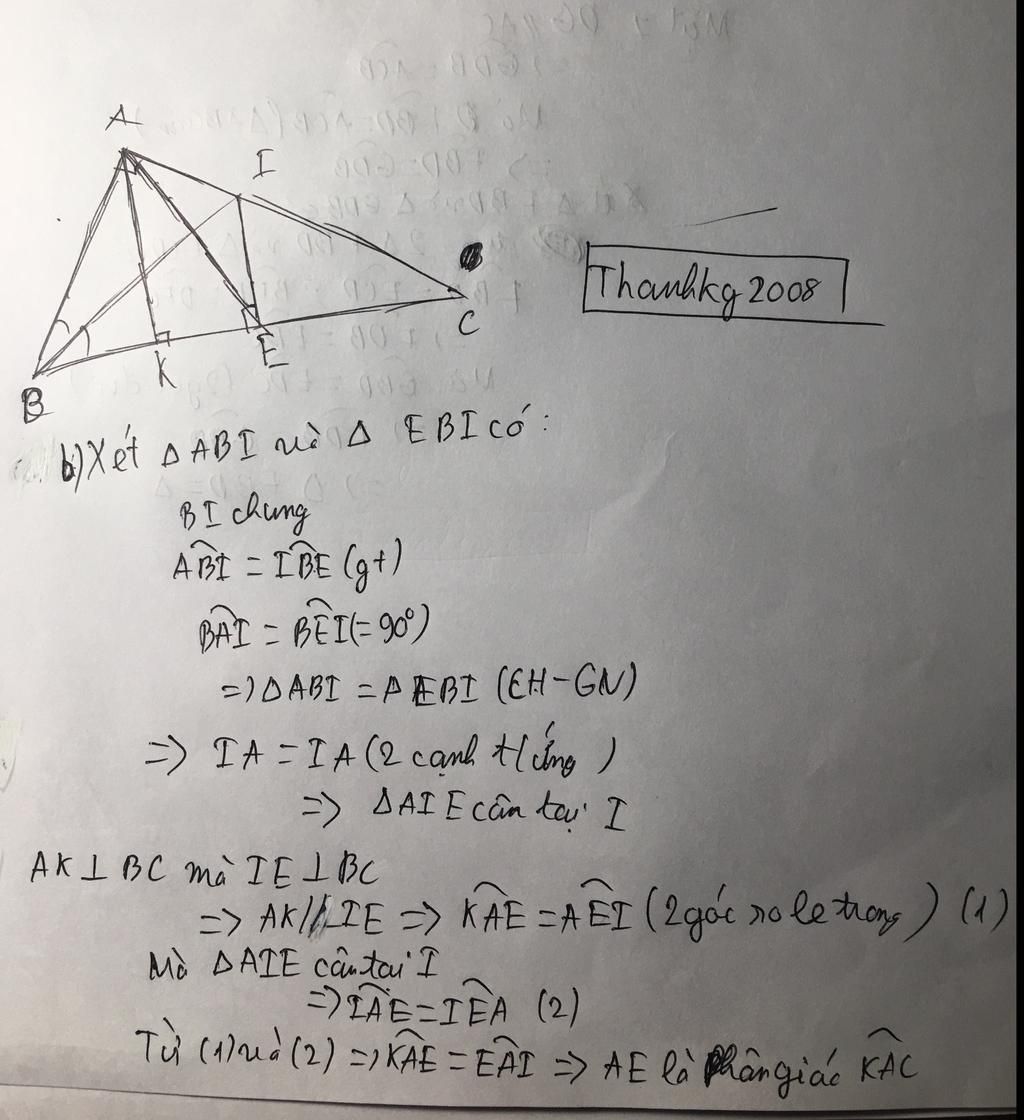 A
I
C
K
E
B
Thanhkg 2008
b) Xét Δ ABI và Δ EBI có:
BI chung
ABI = IBE (gt)
BAI = BEI (= 90°)
=> Δ ABI = Δ EBI (CH - GN)
=> IA = IA (2 cạnh t/ứng)
=> Δ AIE cân tại I
AK ⊥ BC mà IE ⊥ BC
=> AK // IE => KAE = AEI (2 góc so le trong) (1)
Mà Δ AIE cân tại I
=> IAE = IEA (2)
Từ (1) và (2) => KAE = EAI => AE là Phân giác KAC